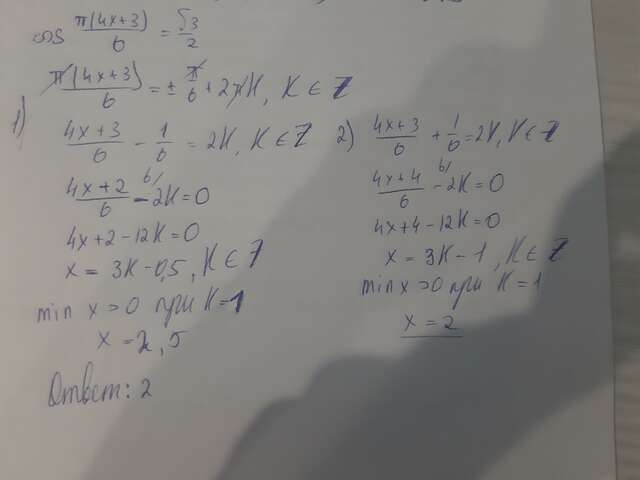 cos π(4x+3)/6 = √3/2
π(4x+3)/6 = ± π/6 + 2πK, K ∈ Z
1)
4x+3/6 - 1/6 = 2K, K ∈ Z
4x+2/6 - 2K = 0
4x+2-12K=0
x = 3K-0,5, K ∈ Z
min x>0 при K=1
x = 2,5
2) 4x+3/6 + 1/6 = 2K, K ∈ Z
4x+4/6 - 2K = 0
4x+4-12K=0
x = 3K-1, K ∈ Z
min x>0 при K=1
x = 2
Ответ: 2